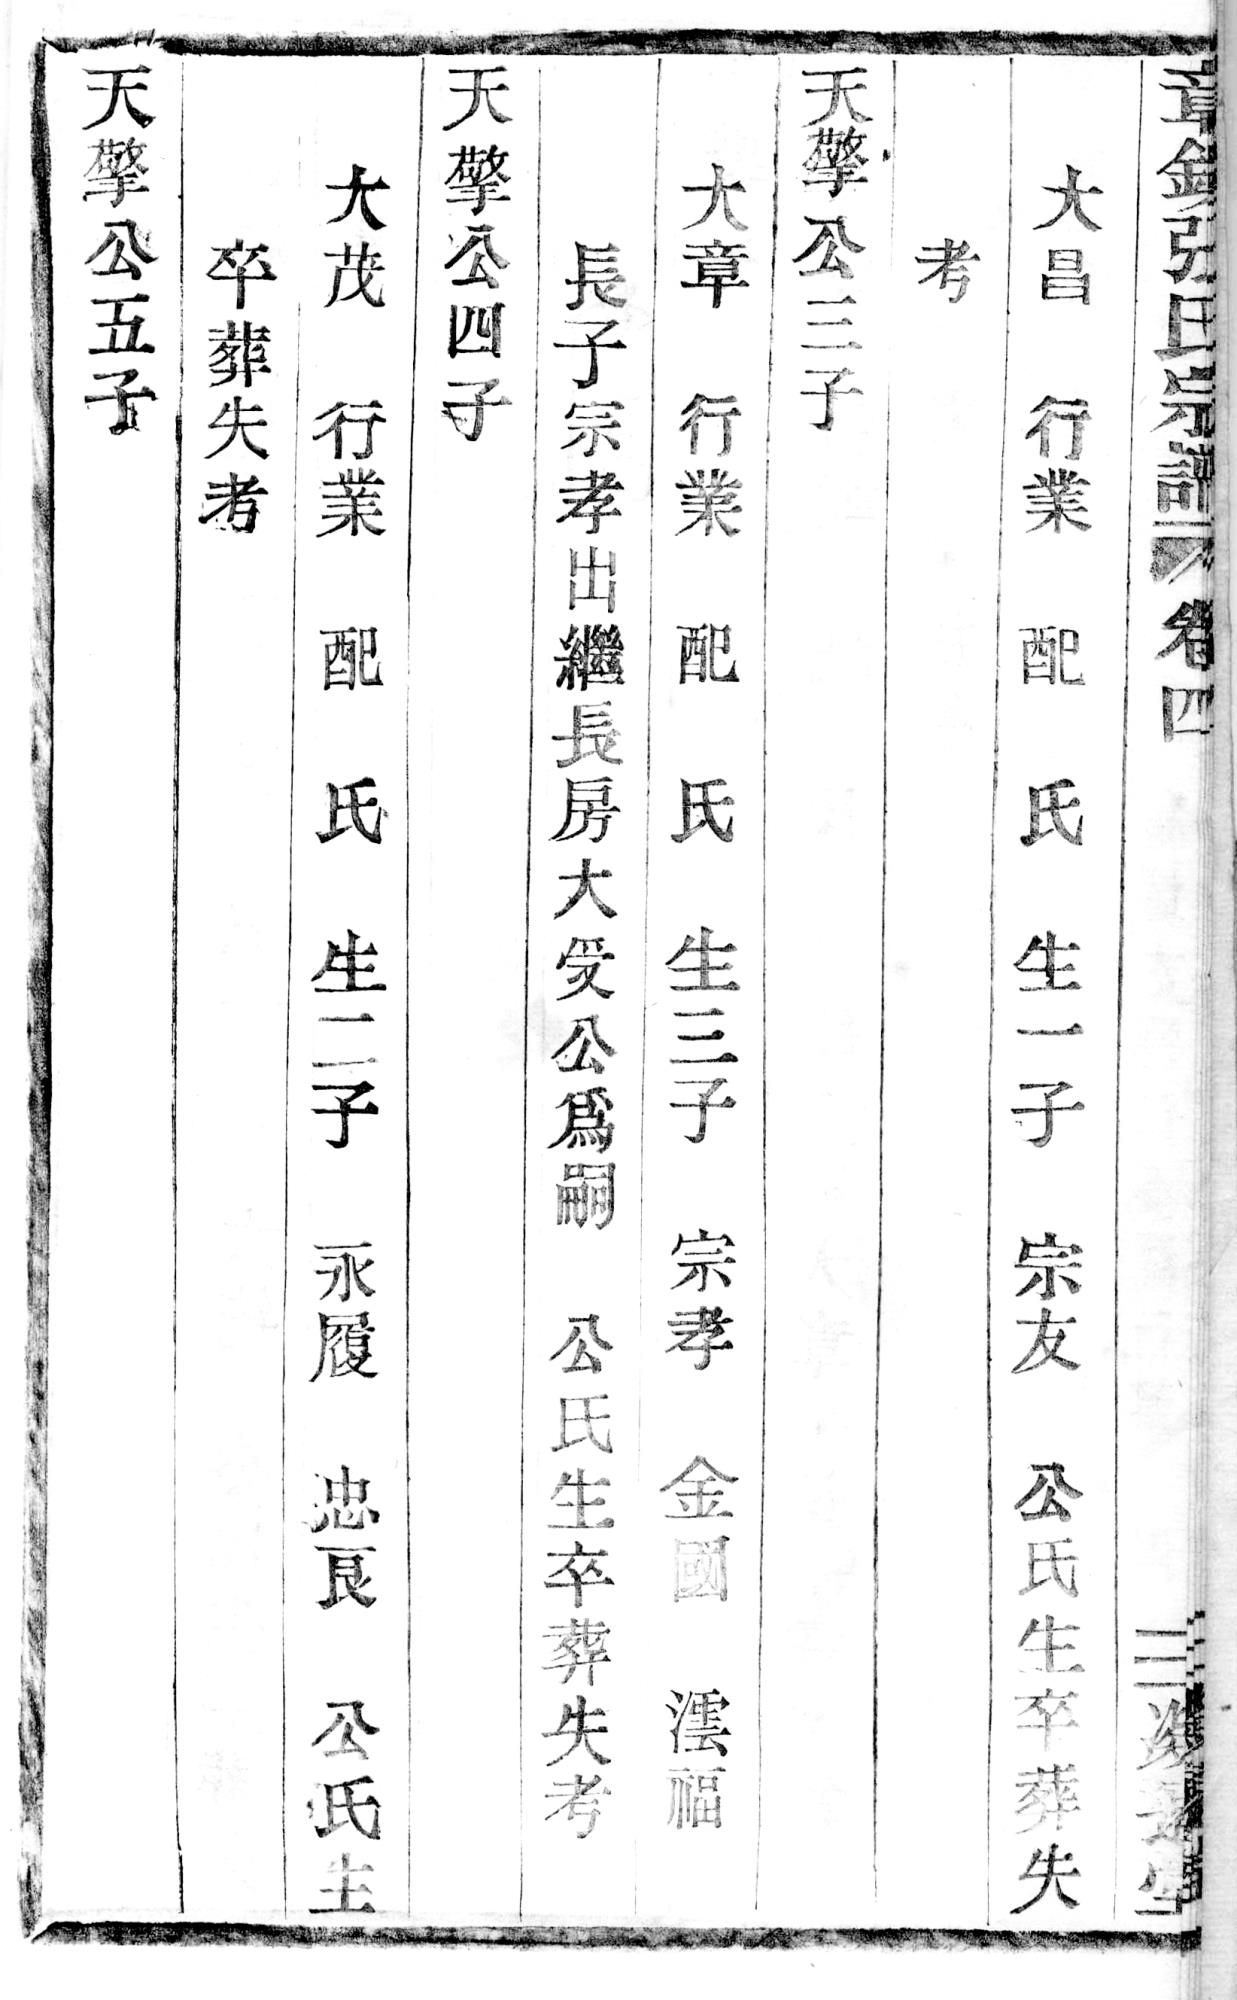 章鎮張氏宗譜 卷四
大昌 行業 配 氏 生一子 宗友 公氏生卒葬失
考
天擎公三子
大章 行業 配 氏 生三子 宗孝 金國 澐福
長子宗孝出繼長房大受公爲嗣 公氏生卒葬失考
天擎公四子
大茂 行業 配 氏 生二子 永履 忠良 公氏生
卒葬失考
天擎公五子